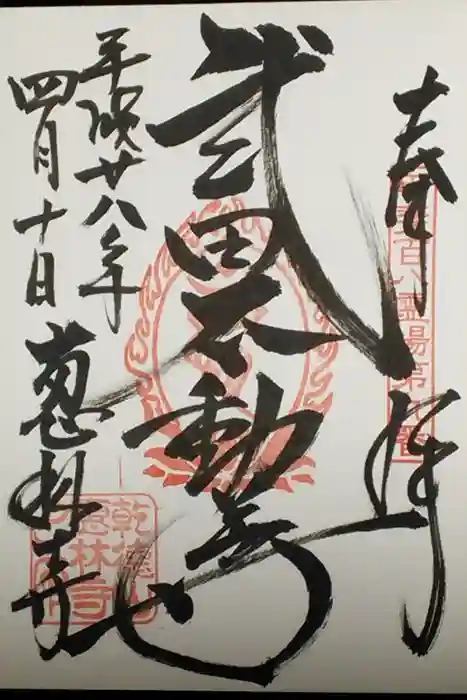 奉拝
百八霊場第
武田不動尊
平成廿八年
四月十日
恵林寺
乾徳山
恵林寺